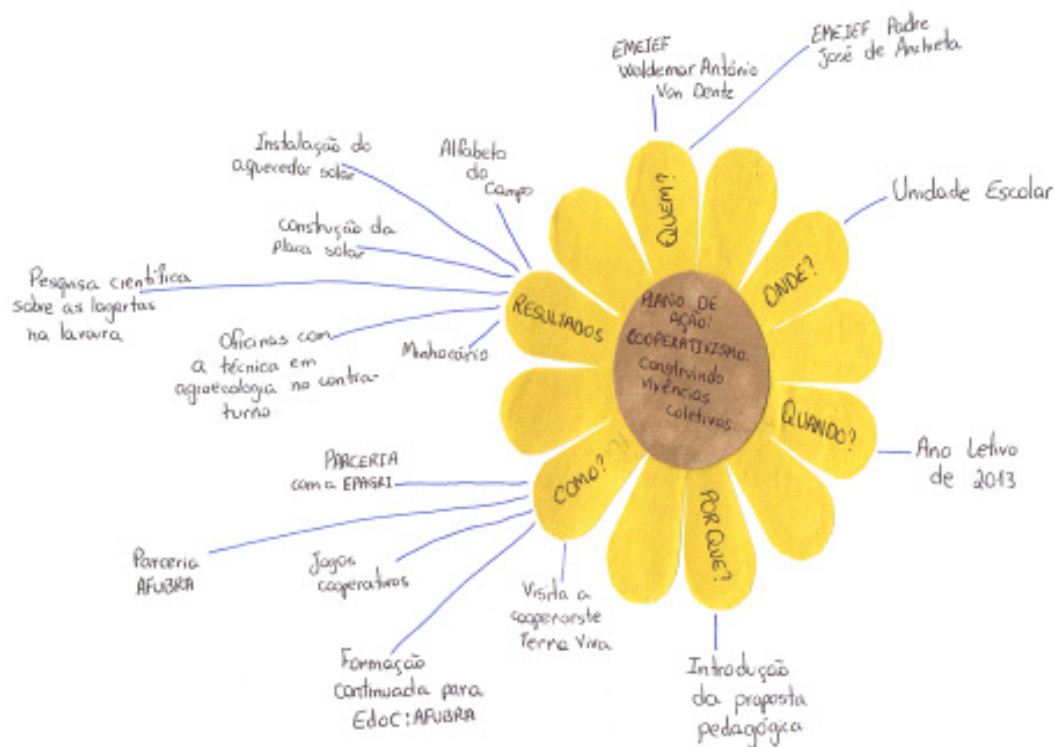 PLANO DE
AÇÃO:
COOPERATIVISMO.
Construindo
vivências
coletivas
QUEM?
EMEIEF
Waldemar Antônio
Von Dentz
EMEIEF Padre
José de Anchieta
ONDE?
Unidade Escolar
QUANDO?
Ano Letivo
de 2013
POR QUE?
Introdução
da proposta
pedagógica
COMO?
Visita a
cooperoeste
Terra Viva
Formação
continuada para
EdoC: AFUBRA
Jogos
cooperativos
Parceria
AFUBRA
PARCERIA
com a EPAGRI
RESULTADOS
Minhocário
Oficinas com
a técnica em
agroecologia no contra-
turno
Pesquisa científica
sobre as lagartas
na lavoura
Construção da
placa solar
Instalação do
aquecedor solar
Alfabeto
do
Campo